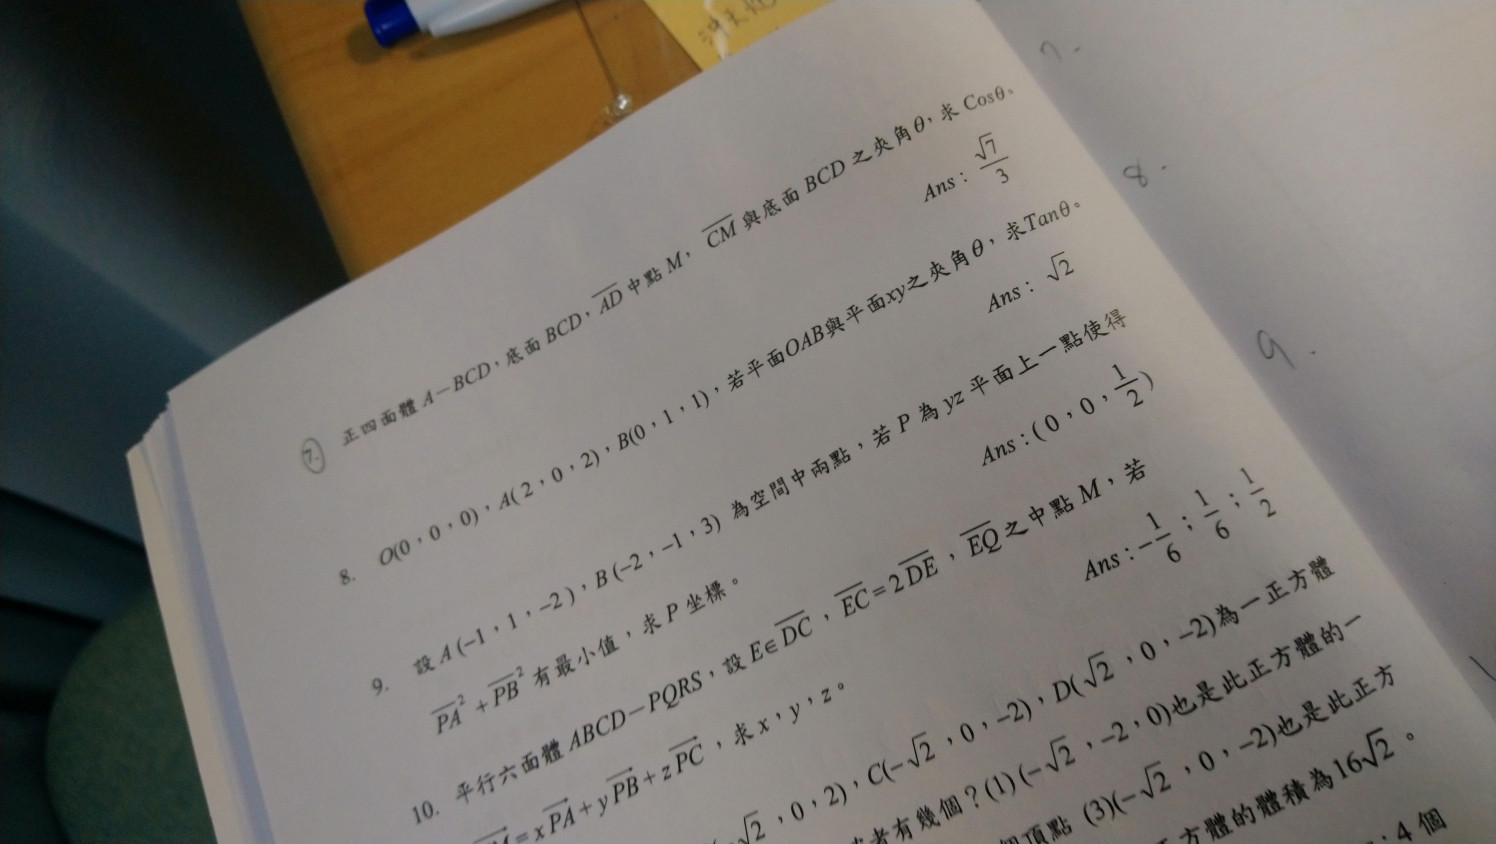 7. 正四面體 A－BCD，底面 BCD，AD 中點 M，CM 與底面 BCD 之夾角θ，求 Cosθ。
Ans： √7/3
8. O(0，0，0)，A(2，0，2)，B(0，1，1)，若平面OAB與平面xy之夾角θ，求Tanθ。
Ans： √2
9. 設 A (–1，1，–2)，B (–2，–1，3) 為空間中兩點，若 P 為 yz 平面上一點使得
PA² + PB² 有最小值，求 P 坐標。
Ans：(0，0，1/2)
10. 平行六面體 ABCD－PQRS，設 E∈DC，EC = 2DE，EQ 之中點 M，若
= xPA + yPB + zPC，求 x，y，z。
Ans：–1/6；1/6；1/2
√2，0，2)，C(–√2，0，–2)，D(√2，0，–2)為一正方體
者有幾個？(1) (–√2，–2，0)也是此正方體的一
個頂點 (3)(–√2，0，–2)也是此正方
方體的體積為16√2。
：4 個
7.
8.
9.